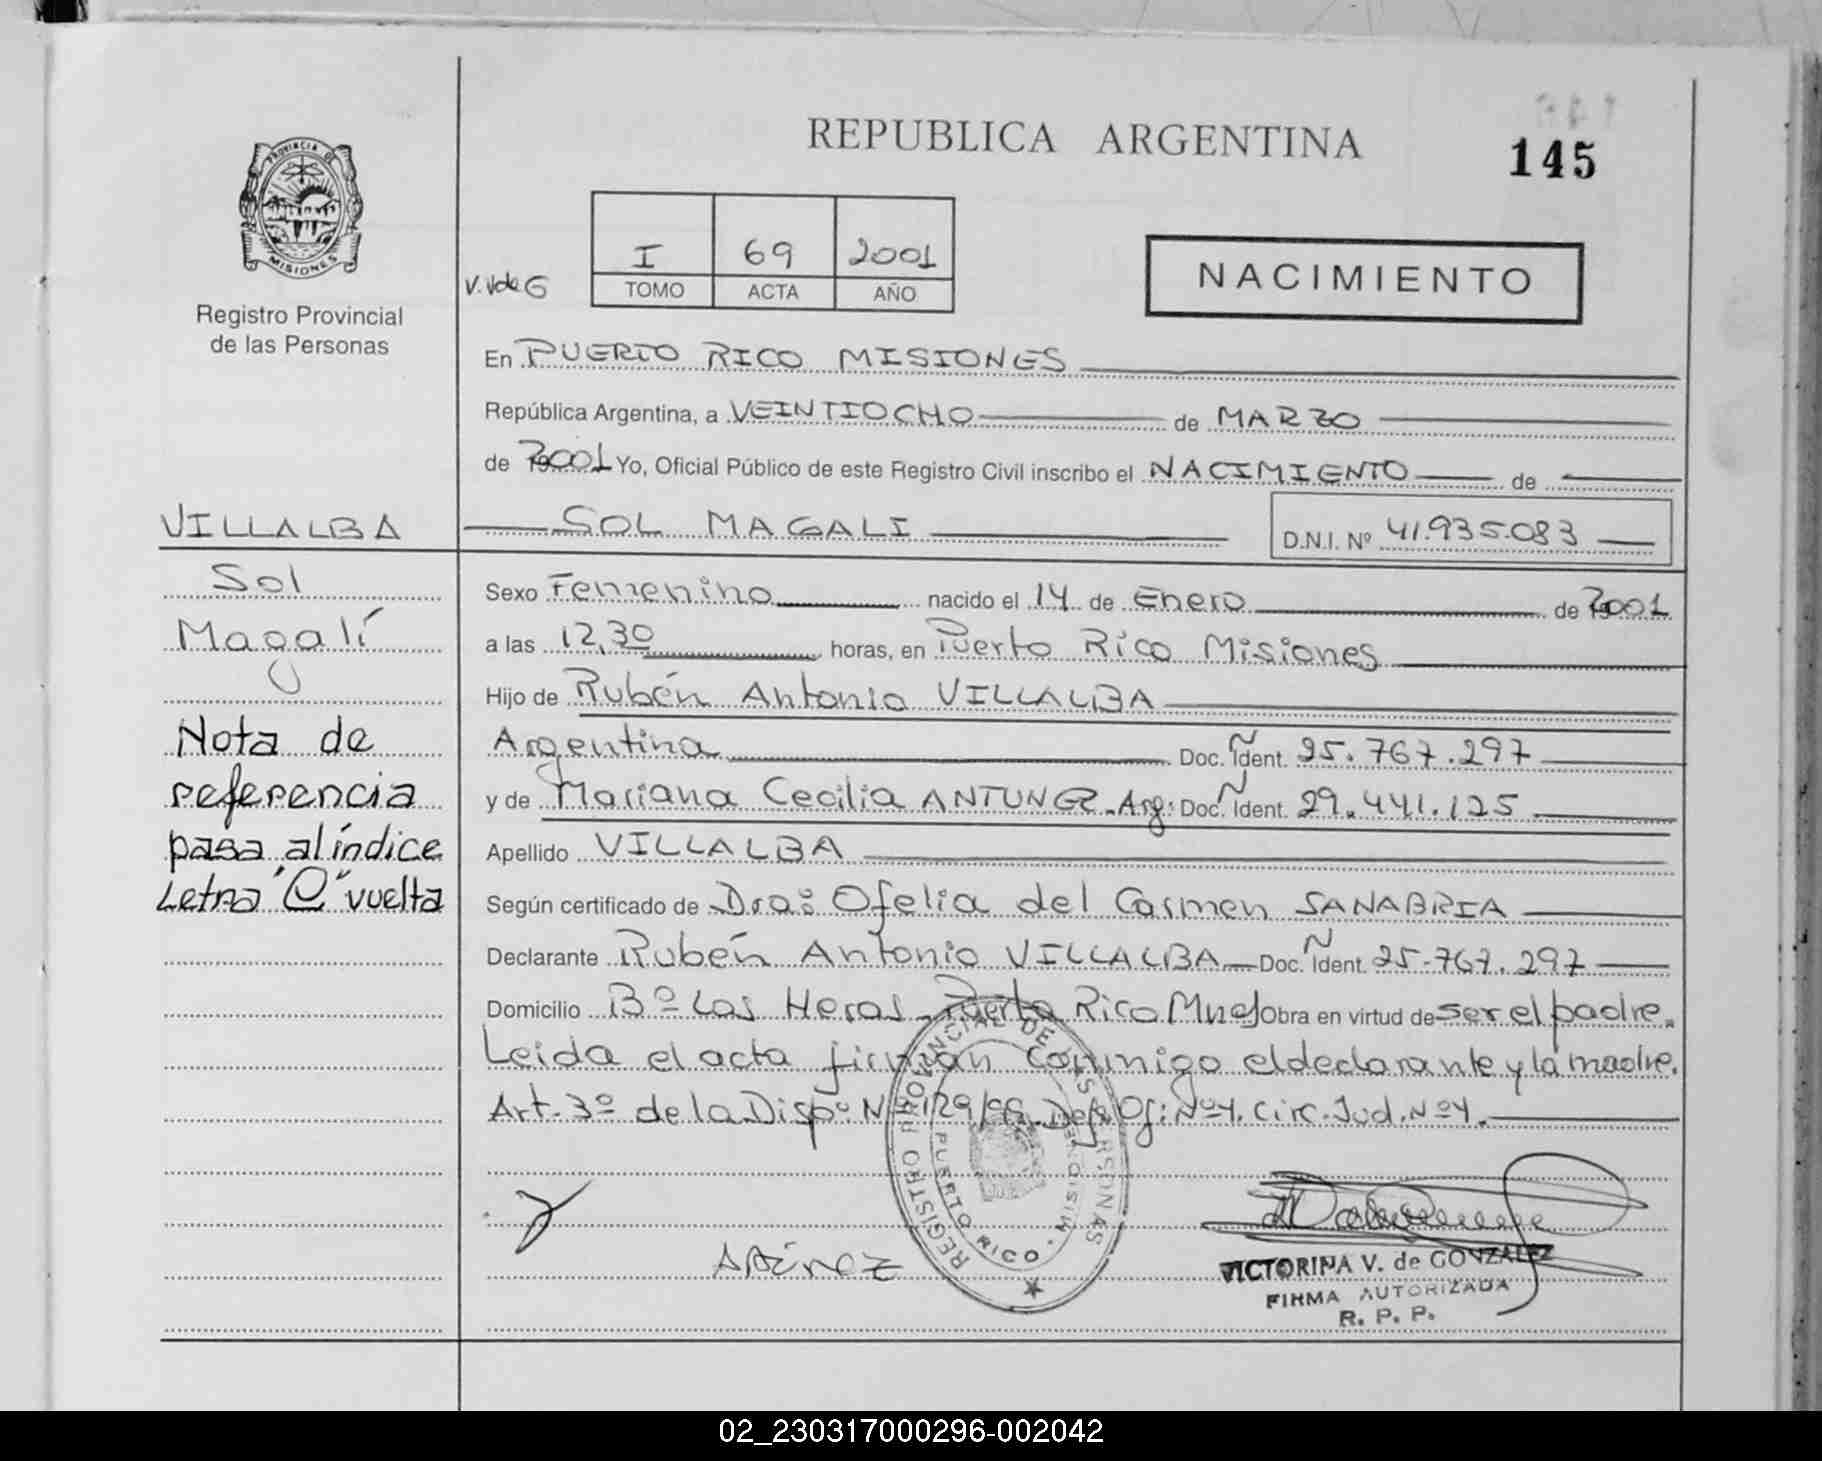 REPUBLICA ARGENTINA
145
PROVINCIA DE
MISIONES
Registro Provincial
de las Personas
V.VdeG
I 69 2001
TOMO ACTA AÑO
NACIMIENTO
En PUERTO RICO MISIONES
República Argentina, a VEINTIOCHO de MARZO
de 2001 Yo, Oficial Público de este Registro Civil inscribo el NACIMIENTO de
VILLALBA
SOL MAGALI
D.N.I. Nº 41.935.083
Sol
Magalí
Sexo Femenino nacido el 14 de Enero de 2001
a las 12,30 horas, en Puerto Rico Misiones
Hijo de Rubén Antonio VILLALBA
Argentina Doc. Ident. 25.767.297
y de Mariana Cecilia ANTUNEZ. Arg: Doc. Ident. 29.441.125
Apellido VILLALBA
Según certificado de Dra: Ofelia del Carmen SANABRIA
Declarante Rubén Antonio VILLALBA Doc. Ident. 25.767.297
Domicilio Bº Las Heras. Puerto Rico Mnes Obra en virtud de ser el padre.
Leida el acta firman conmigo el declarante y la madre.
Art. 3º de la Disp: Nº 129/99. Ofi: Nº4. Circ. Jud. Nº4.
Nota de
referencia
pasa al índice
Letra "C" vuelta
REGISTRO PROVINCIAL DE LAS PERSONAS
PUERTO RICO · MISIONES
VICTORINA V. de GONZALEZ
FIRMA AUTORIZADA
R. P. P.
02_230317000296-002042